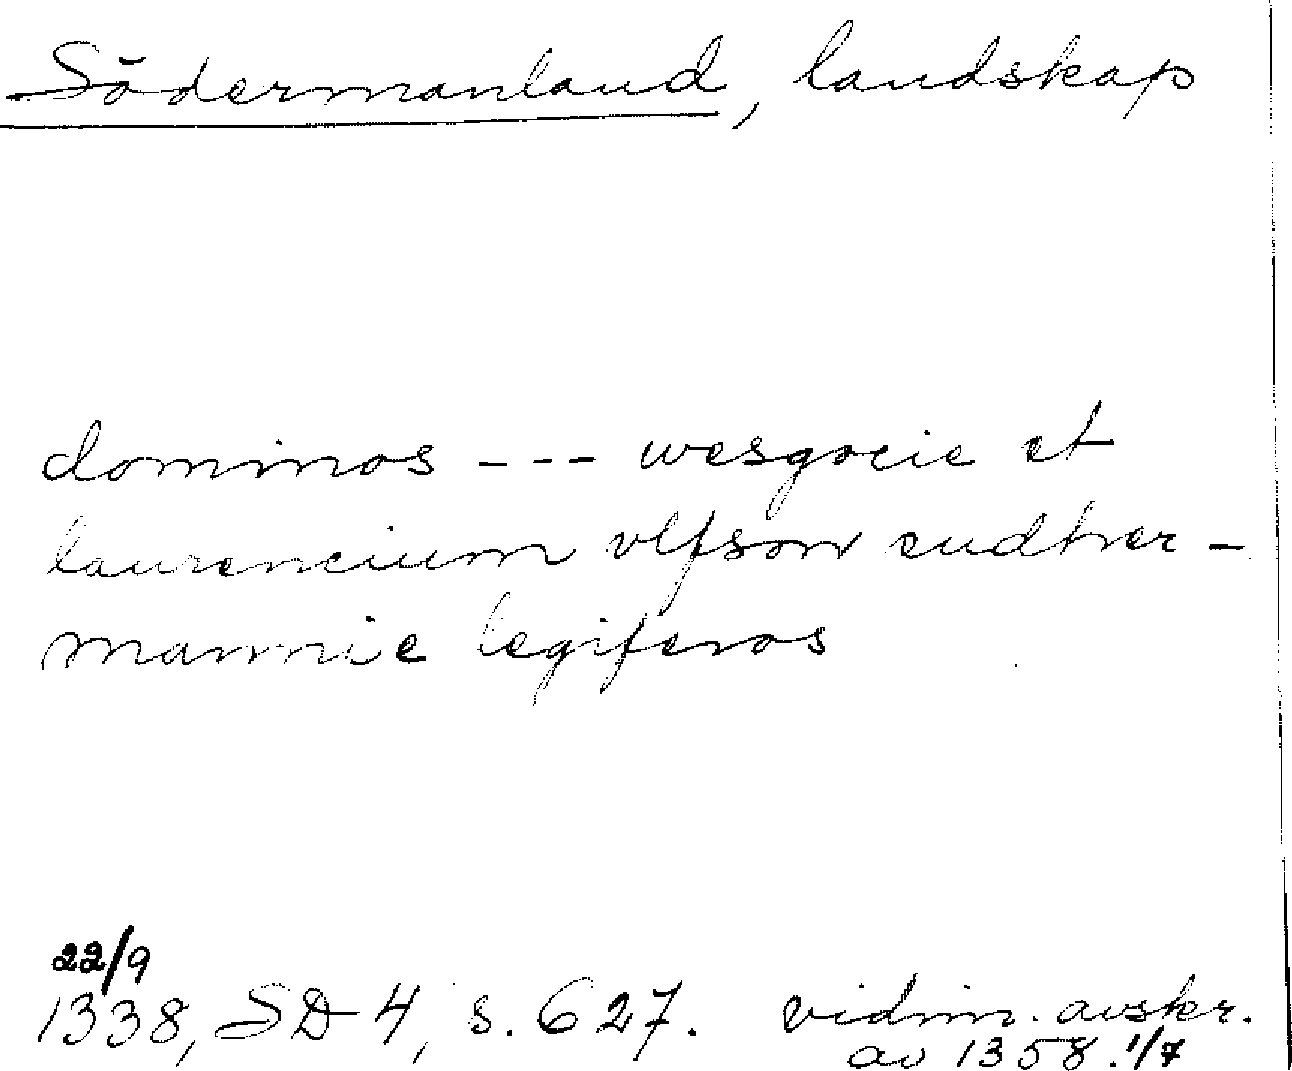 Södermanland, landskap
dominos --- wesgocie et
laurencium vlfson sudher-
mannie legiferos
22/9
1338, SD 4, s. 627. vidim. avskr.
av 1358.1/7